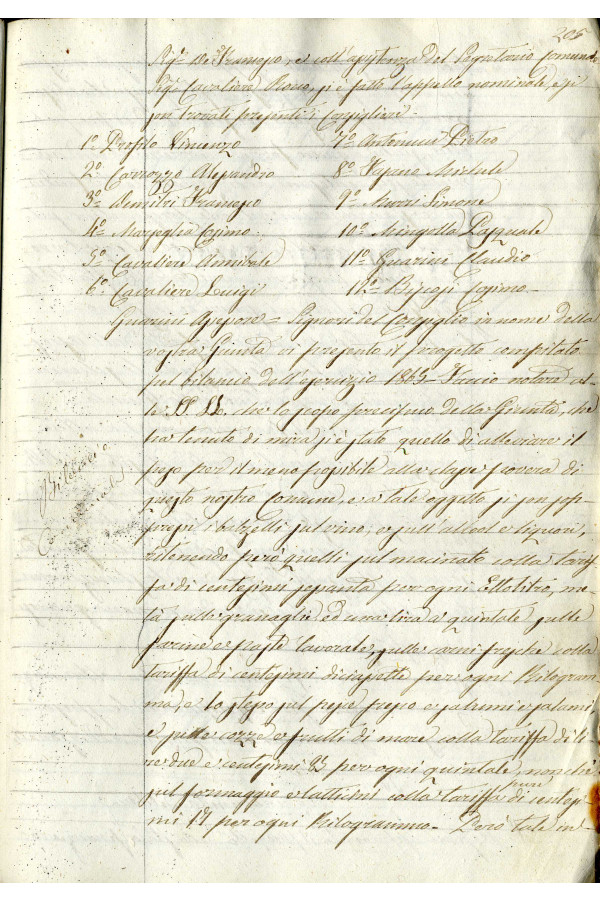 205
Sig.r De Tramezo, e coll'assistenza del Segretario Comunale
Sig.r Cavaliere Rocco, si è fatto l'appello nominale, e si
son trovati presenti i Consiglieri
1° Profilo Vincenzo
2° Carrozzo Alessandro
3° Dimitri
4° Masseglia Cosimo
5° Cavaliere Annibale
6° Cavaliere Luigi
7° Antonucci Pietro
8° Michele
9° Murri Simone
10° Mingolla Pasquale
11° Guarini Claudio
12° Cosimo
Guarini Assessore = Signori del Consiglio in nome della
vostra Giunta vi presento il progetto compilato
pel bilancio dell'esercizio 1865. Faccio notare al-
le SS. LL. che lo scopo precipuo della Giunta, che
ha tenuto di mira si è stato quello di alleviare il
peso per il meno possibile alla classe povera di
questo nostro Comune, e a tale oggetto si son sop-
pressi i balzelli sul vino, e sull'alcool e liquori,
ritenendo però quelli sul macinato colla tarif-
fa di centesimi sessanta per ogni Ettolitro, me-
tà sulle granaglie ed una lira a quintale sulle
farine e paste lavorate, sulle carni fresche colla
tariffa di centesimi diciassette per ogni Kilogram-
ma, e lo stesso sul pesce fresco e salumi e salami
e sulle cozze e frutti di mare colla tariffa di li-
re due e centesimi 25 per ogni quintale, nonchè
sul formaggio e latticini colla tariffa pure di centesi-
mi 17 per ogni Kilogrammo. Però tale in-
Bilancio
Comunale